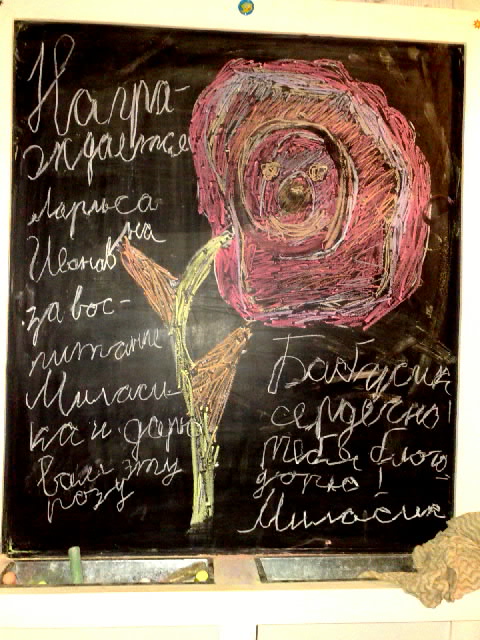 Награ-
ждается
Лариса
Иванов
на
за вос-
питание
Миласи-
ка и дарю
вам эту
розу
Бабусик
сердечно!
тебя благо
дарю!
Миласик